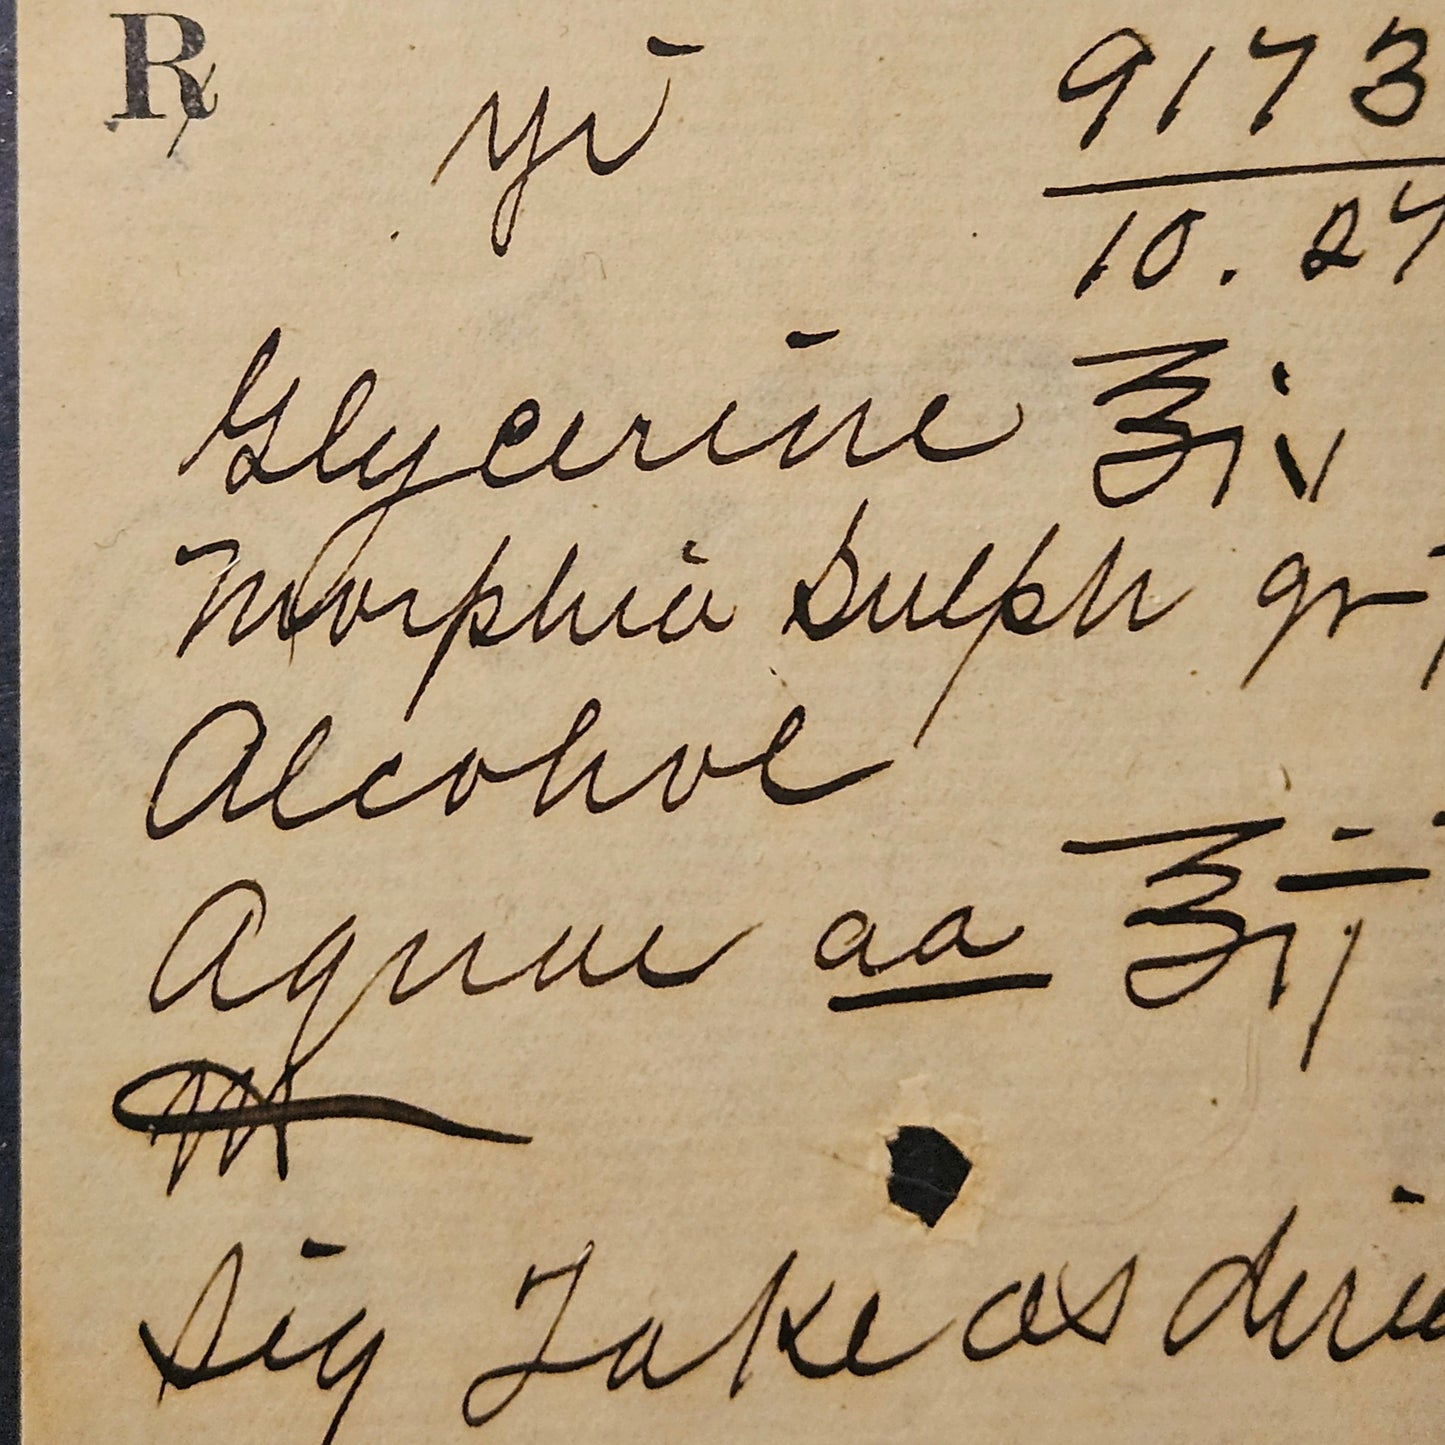 ℞ 9173
10. 24
Glycerine ℥iv
Morphia Sulph gr
Alcohol
Aquae aa ℥ij
M
Sig Take as direc